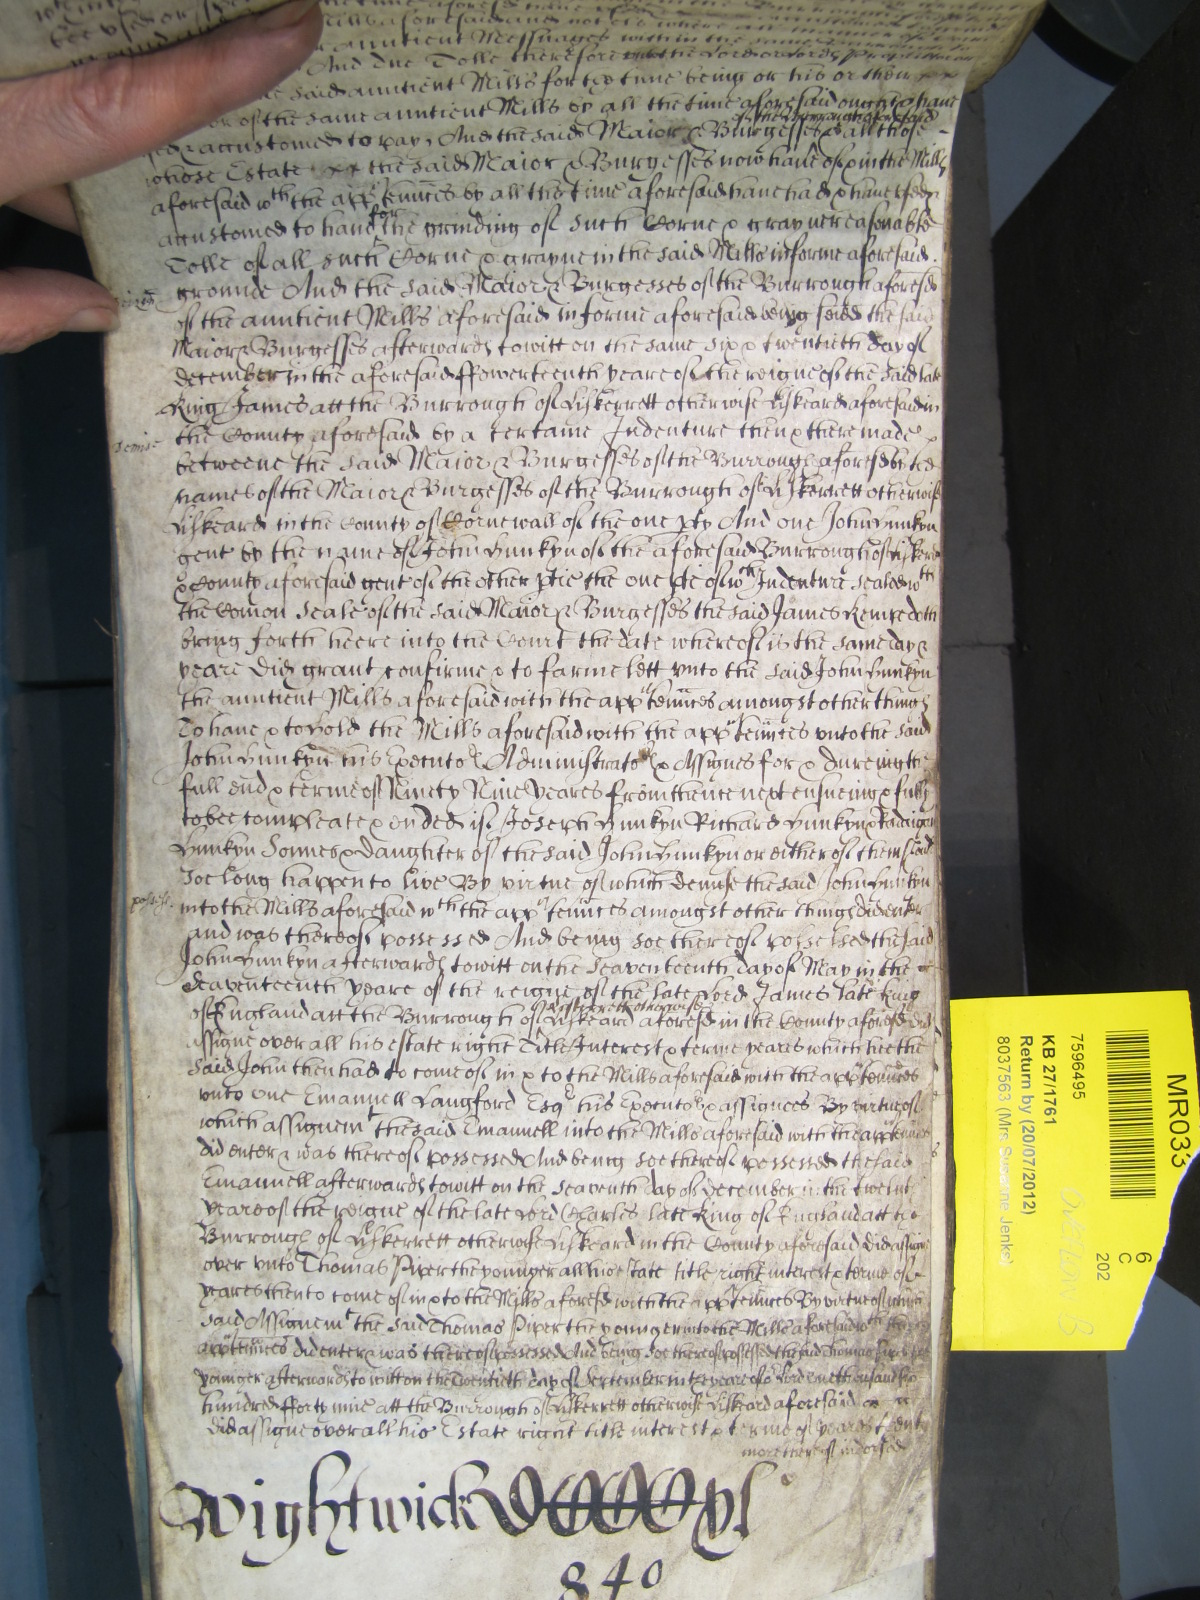 Mills aforesaid and not els where
auntient Messuages within the same
And due Tolle therefore
said auntient Mills for the tyme being or his or their
of the same auntient Mills by all the tyme aforesaid ought & have
of the Burrough aforesaid
& accustomed to pay, And the said Maior & Burgesses & all those
whose Estate the said Maior & Burgesses now have of & in the Mills
aforesaid wth the apptennces by all the tyme aforesaid have had & have used &
accustomed to have for the grinding of such Corne & grayne reasonable
Tolle of all such Corne & grayne in the said Mills in forme aforesaid
grounde And the said Maior & Burgesses of the Burrough aforesd
of the auntient Mills aforesaid in forme aforesaid being seised the said
Maior & Burgesses afterwards to witt on the same six & twentieth day of
December in the aforesaid ffowerteenth yeare of the reigne of the said late
King James att the Burrough of Liskerrett otherwise Liskeard aforesaid in
demise
the County aforesaid by a certaine Indenture then & there made
betweene the said Maior & Burgesses of the Burrough aforesd by the
names of the Maior & Burgesses of the Burrough of Liskerrett otherwise
Liskeard in the County of Cornewall of the one pty And one John Hunkyn
gent by the name of John Hunkyn of the aforesaid Burrough of Liskerrett
& County aforesaid gent of the other ptie the one pte of wch Indenture sealed wth
the Comon Seale of the said Maior & Burgesses the said James Kempe doth
bring forth heere into the Court the date whereof is the same day &
yeare did grant confirme & to farme lett vnto the said John Hunkyn
the auntient Mills aforesaid with the apptennces amongst other things
To have & to hold the Mills aforesaid with the apptennces vnto the said
John Hunkyn his Executors Administrators & Assignes for & dureing the
full end & terme of Ninety Nine yeares from thence next ensueing & fully
to bee compleate & ended if Joseph Hunkyn Richard Hunkyn &
Hunkyn Sonnes & daughter of the said John Hunkyn or either of them shall
soe long happen to live By virtue of which demise the said John Hunkyn
possess.
into the Mills aforesaid wth the apptennces amongst other things did enter
and was thereof possessed And being soe thereof possessed the said
John Hunkyn afterwards to witt on the seaventeenth day of May in the
seaventeenth yeare of the reigne of the late Lord James late King
Liskerrett otherwise
of England att the Burrough of Liskeard aforesd in the County aforesd did
assigne over all his estate right Title Interest & terme yeares which hee the
said John then had to come of in & to the Mills aforesaid with the apptennces
vnto one Emanuell Langford Esqr his Executors & assignes By virtue of
which assignemt the said Emanuell into the Mills aforesaid with the apptennces
did enter & was thereof possessed And being soe thereof possessed the said
Emanuell afterwards to witt on the seaventh day of December in the twent
yeare of the reigne of the late Lord Charles late King of England att the
Burrough of Liskerrett otherwise Liskeard in the County aforesaid did assigne
over vnto Thomas Piper the younger all his estate title right interest & terme of
yeares then to come of in & to the Mills aforesd with the apptennces By virtue of which
said Assignemt the said Thomas Piper the younger into the Mills aforesaid wth the
apptennces did enter & was thereof possessed And being soe thereof possessed the said Thomas Piper the
younger afterwards to witt on the Twentieth day of September in the yeare of or Lord one thousand six
hundred fforty nine att the Burrough of Liskerrett otherwise Liskeard aforesaid
did assigne over all his Estate right title interest & terme of yeares
more thereof indorsed
Wightwick
840
MR033
7596495
KB 27/1761
Return by (20/07/2012)
8037563 (Mrs Susanne Jenks)
6
C
202